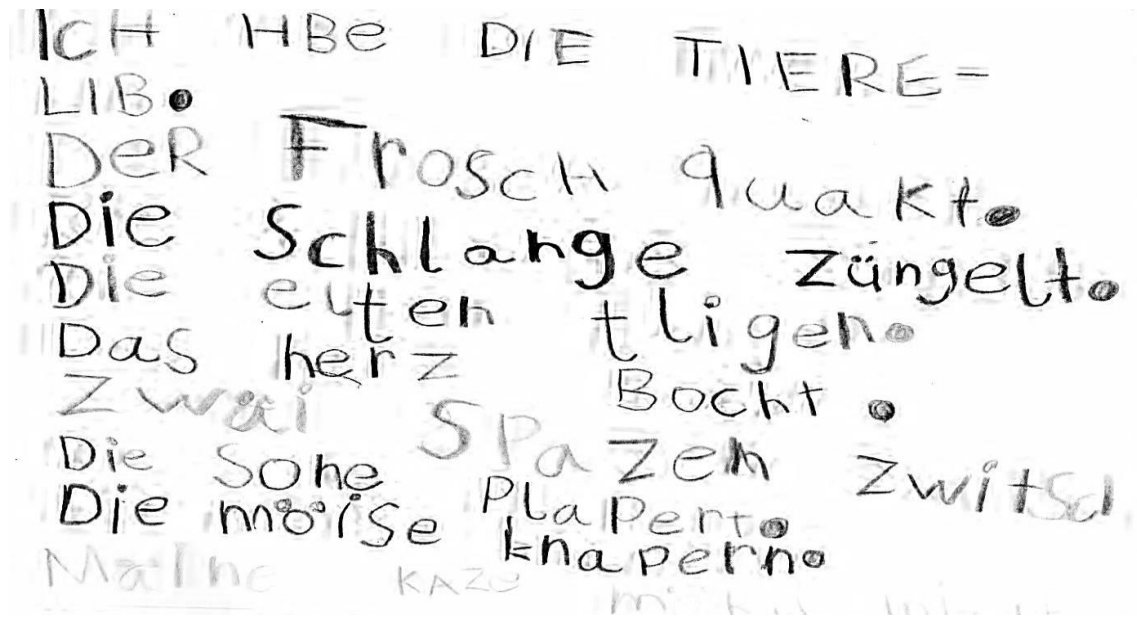 ICH HBe DIE TIERE=
LIB.
DeR Frosch quakt.
Die Schlange züngelt.
Die eulen tligen.
Das herz Bocht.
Zwai SPazen zwitsch
Die Sone PlaPert.
Die möise knapern.
Maine KAZe